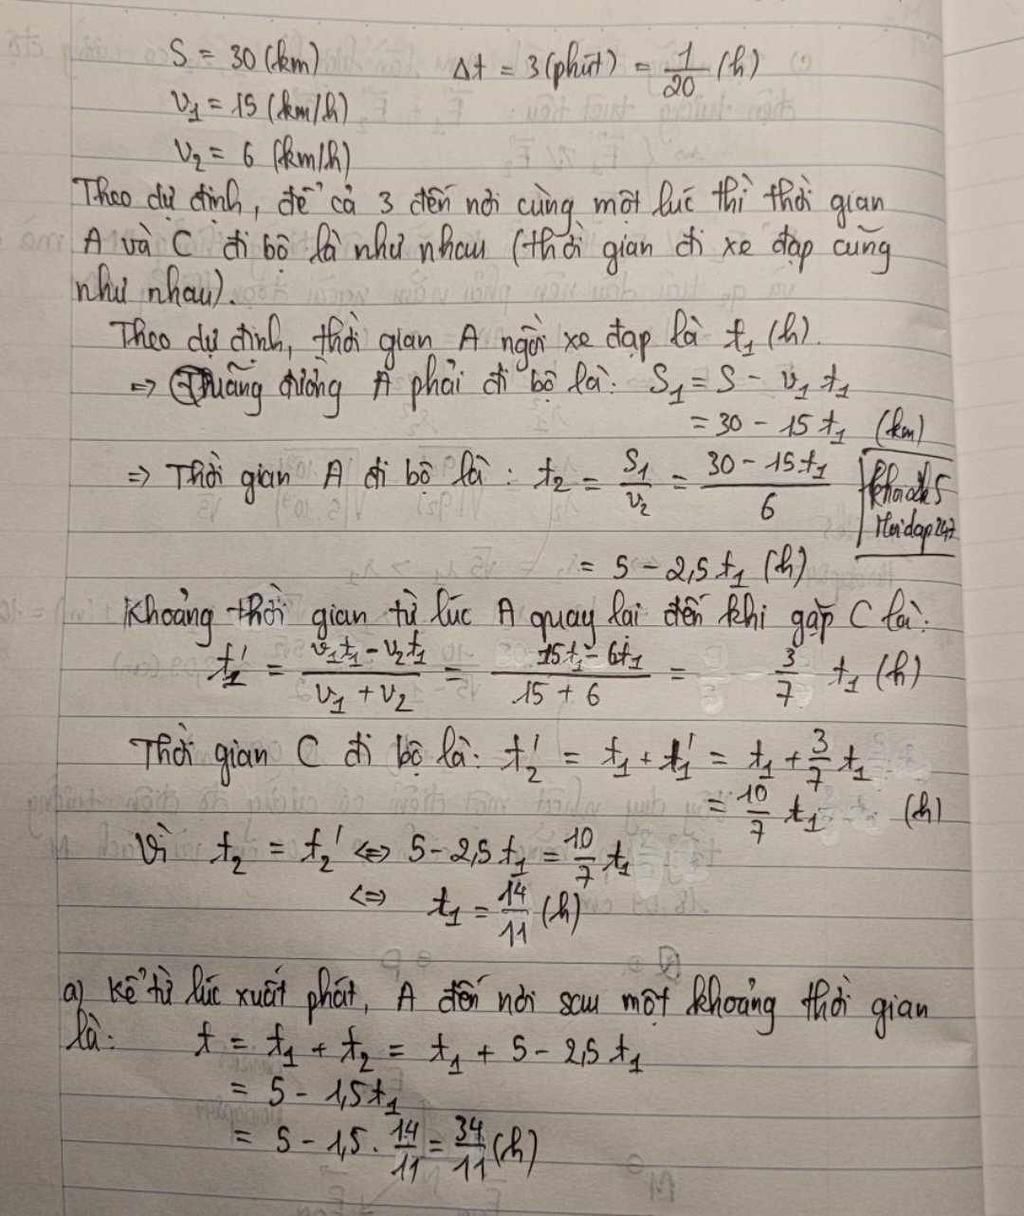 S = 30 (km) Δt = 3 (phút) = 1/20 (h)
v₁ = 15 (km/h)
v₂ = 6 (km/h)
Theo dự định, để cả 3 đến nơi cùng một lúc thì thời gian
A và C đi bộ là như nhau (thời gian đi xe đạp cũng
như nhau).
Theo dự định, thời gian A ngồi xe đạp là t₁ (h).
=> Quãng đường A phải đi bộ là: S₁ = S - v₁ t₁
= 30 - 15 t₁ (km)
=> Thời gian A đi bộ là: t₂ = S₁/v₂ = (30 - 15t₁)/6
khoaik5
Hoidap247
= 5 - 2,5 t₁ (h)
Khoảng thời gian từ lúc A quay lại đến khi gặp C là:
t₁' = (v₁t₁ - v₂t₁)/(v₁ + v₂) = (15t₁ - 6t₁)/(15 + 6) = 3/7 t₁ (h)
Thời gian C đi bộ là: t₂' = t₁ + t₁' = t₁ + 3/7 t₁
= 10/7 t₁ (h)
Vì t₂ = t₂' <=> 5 - 2,5 t₁ = 10/7 t₁
<=> t₁ = 14/11 (h)
a) Kể từ lúc xuất phát, A đến nơi sau một khoảng thời gian
là: t = t₁ + t₂ = t₁ + 5 - 2,5 t₁
= 5 - 1,5t₁
= 5 - 1,5 . 14/11 = 34/11 (h)